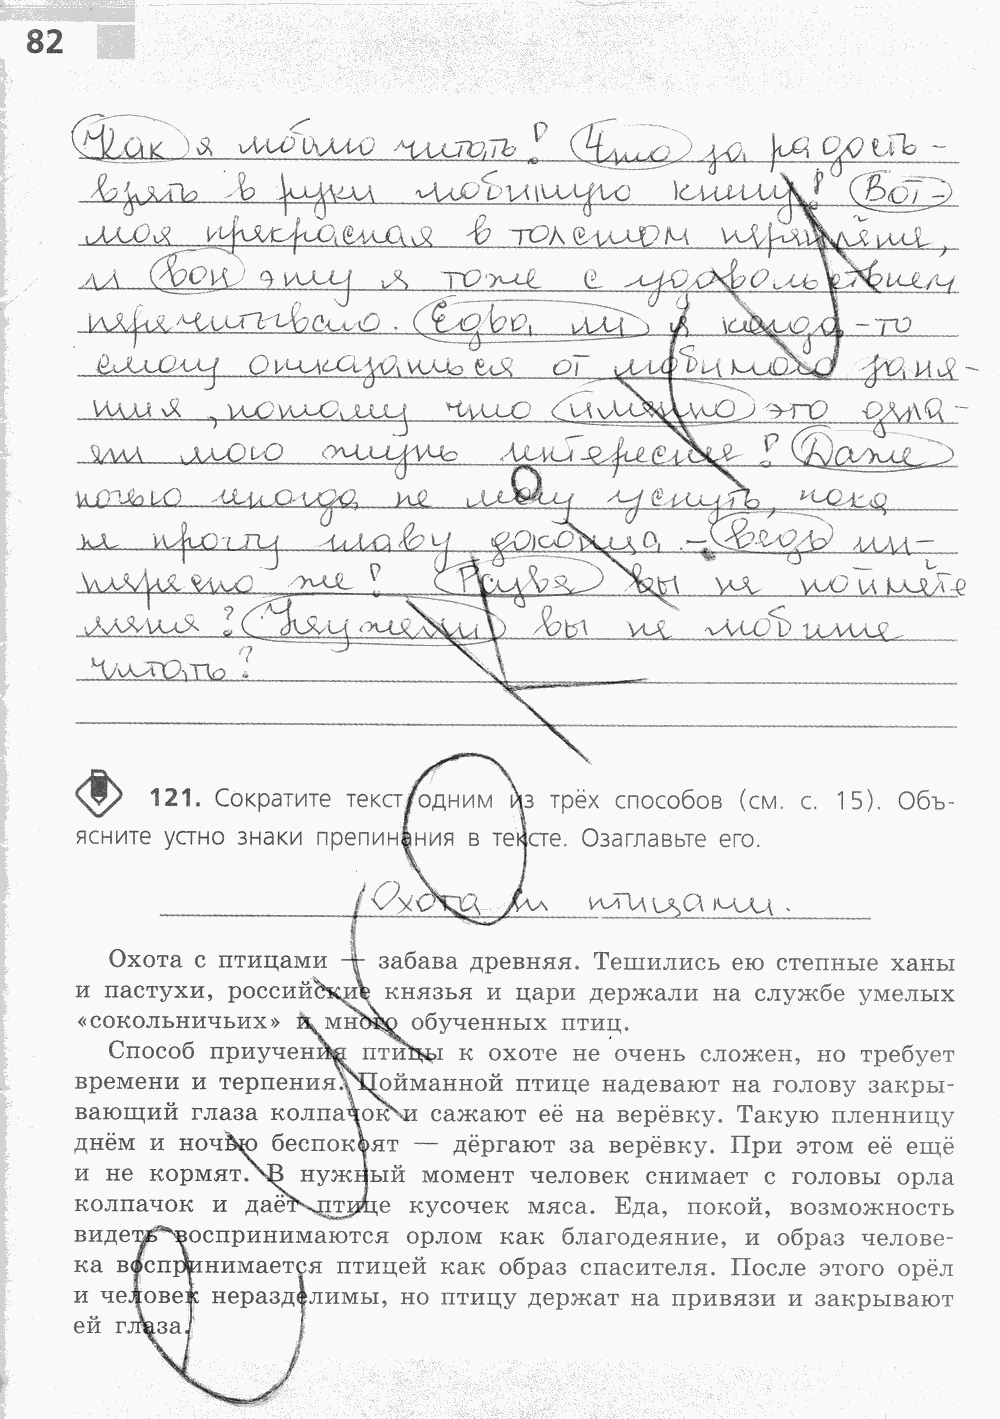 82
Как я люблю читать! Что за радость -
взять в руки любимую книгу! Вот -
моя прекрасная в толстом переплёте,
и вон эту я тоже с удовольствием
перечитываю. Едва ли я когда-то
смогу отказаться от любимого заня-
тия, потому что именно это дела-
ет мою жизнь интересней! Даже
ночью иногда не могу уснуть, пока
не прочту главу доконца - ведь ин-
тересно же! Разве вы не поймёте
меня? Неужели вы не любите
читать?
121. Сократите текст одним из трёх способов (см. с. 15). Объ-
ясните устно знаки препинания в тексте. Озаглавьте его.
Охота с птицами.
Охота с птицами — забава древняя. Тешились ею степные ханы
и пастухи, российские князья и цари держали на службе умелых
«сокольничьих» и много обученных птиц.
Способ приучения птицы к охоте не очень сложен, но требует
времени и терпения. Пойманной птице надевают на голову закры-
вающий глаза колпачок и сажают её на верёвку. Такую пленницу
днём и ночью беспокоят — дёргают за верёвку. При этом её ещё
и не кормят. В нужный момент человек снимает с головы орла
колпачок и даёт птице кусочек мяса. Еда, покой, возможность
видеть воспринимаются орлом как благодеяние, и образ челове-
ка воспринимается птицей как образ спасителя. После этого орёл
и человек неразделимы, но птицу держат на привязи и закрывают
ей глаза.